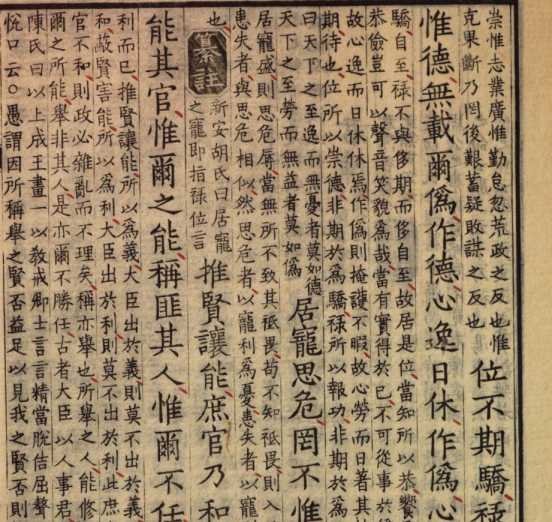 崇惟志業廣惟勤怠忽荒政之反也惟
克果斷乃罔後艱蓄疑敗謀之反也
位不期驕祿
惟德無載爾僞作德心逸日休作僞心
驕自至祿不與侈期而侈自至故居是位當知所以恭饗
恭儉豈可以聲音笑貌爲哉當有實得於已不可從事於
故心逸而日休休焉作僞則掩護不暇故心勞而日著其
期待也位所以崇德非期於爲驕祿所以報功非期於爲
曰天下之至逸而無憂者莫如德
天下之至勞而無益者莫如僞
居寵思危罔不惟
居寵盛則思危辱當無所不致其祗畏苟不知祗畏則入
患失者與思危相似然思危者以寵利爲憂患失者以寵
也
纂註
新安胡氏曰居寵
之寵即指祿位言
推賢讓能庶官乃和
能其官惟爾之能稱匪其人惟爾不任
利而已推賢讓能所以爲義大臣出於義則莫不出於義
和蔽賢害能所以爲利大臣出於利則莫不出於利此庶
官不和則政必雜亂而不理矣稱亦舉也所舉之人能修
爾之所能舉非其人是亦爾不勝任古者大臣以人事君
陳氏曰以上成王畫一以敎戒卿士言言精當脫佶屈聱
悅口云○愚謂因所稱舉之賢否益足以見我之賢否則